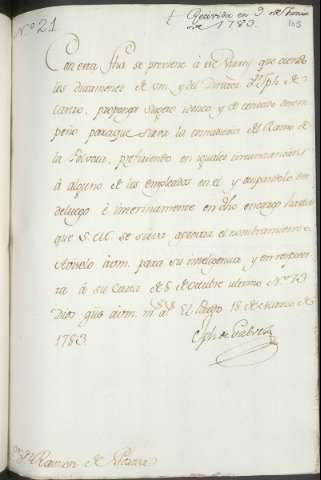 Nº 21
Recivida en 9. de Junio
de 1783.
105
Con esta fha se previene á ese Virrey que oiendo
los dictamenes de vm. y del Director Dⁿ Jph de
Cartas, proponga Sugeto idoneo y de
para que sirva la contaduria del Ramo de
la Polvora, prefiriendo en iguales circunstancias
á alguno de los empleados en el y ocupandolo
desde luego é interinamente en dho encargo hasta
que S. M. se sirva aprovar el nombramiento
Avisolo á vm. para su inteligencia y en respues
ta á su Carta de 5 de Octubre ultimo Nº 13
Dios gue á vm. mˢ aˢ El Pardo 18 de Marzo de
1783
Jph de Galvez
Sʳ Dⁿ Ramon de Posada